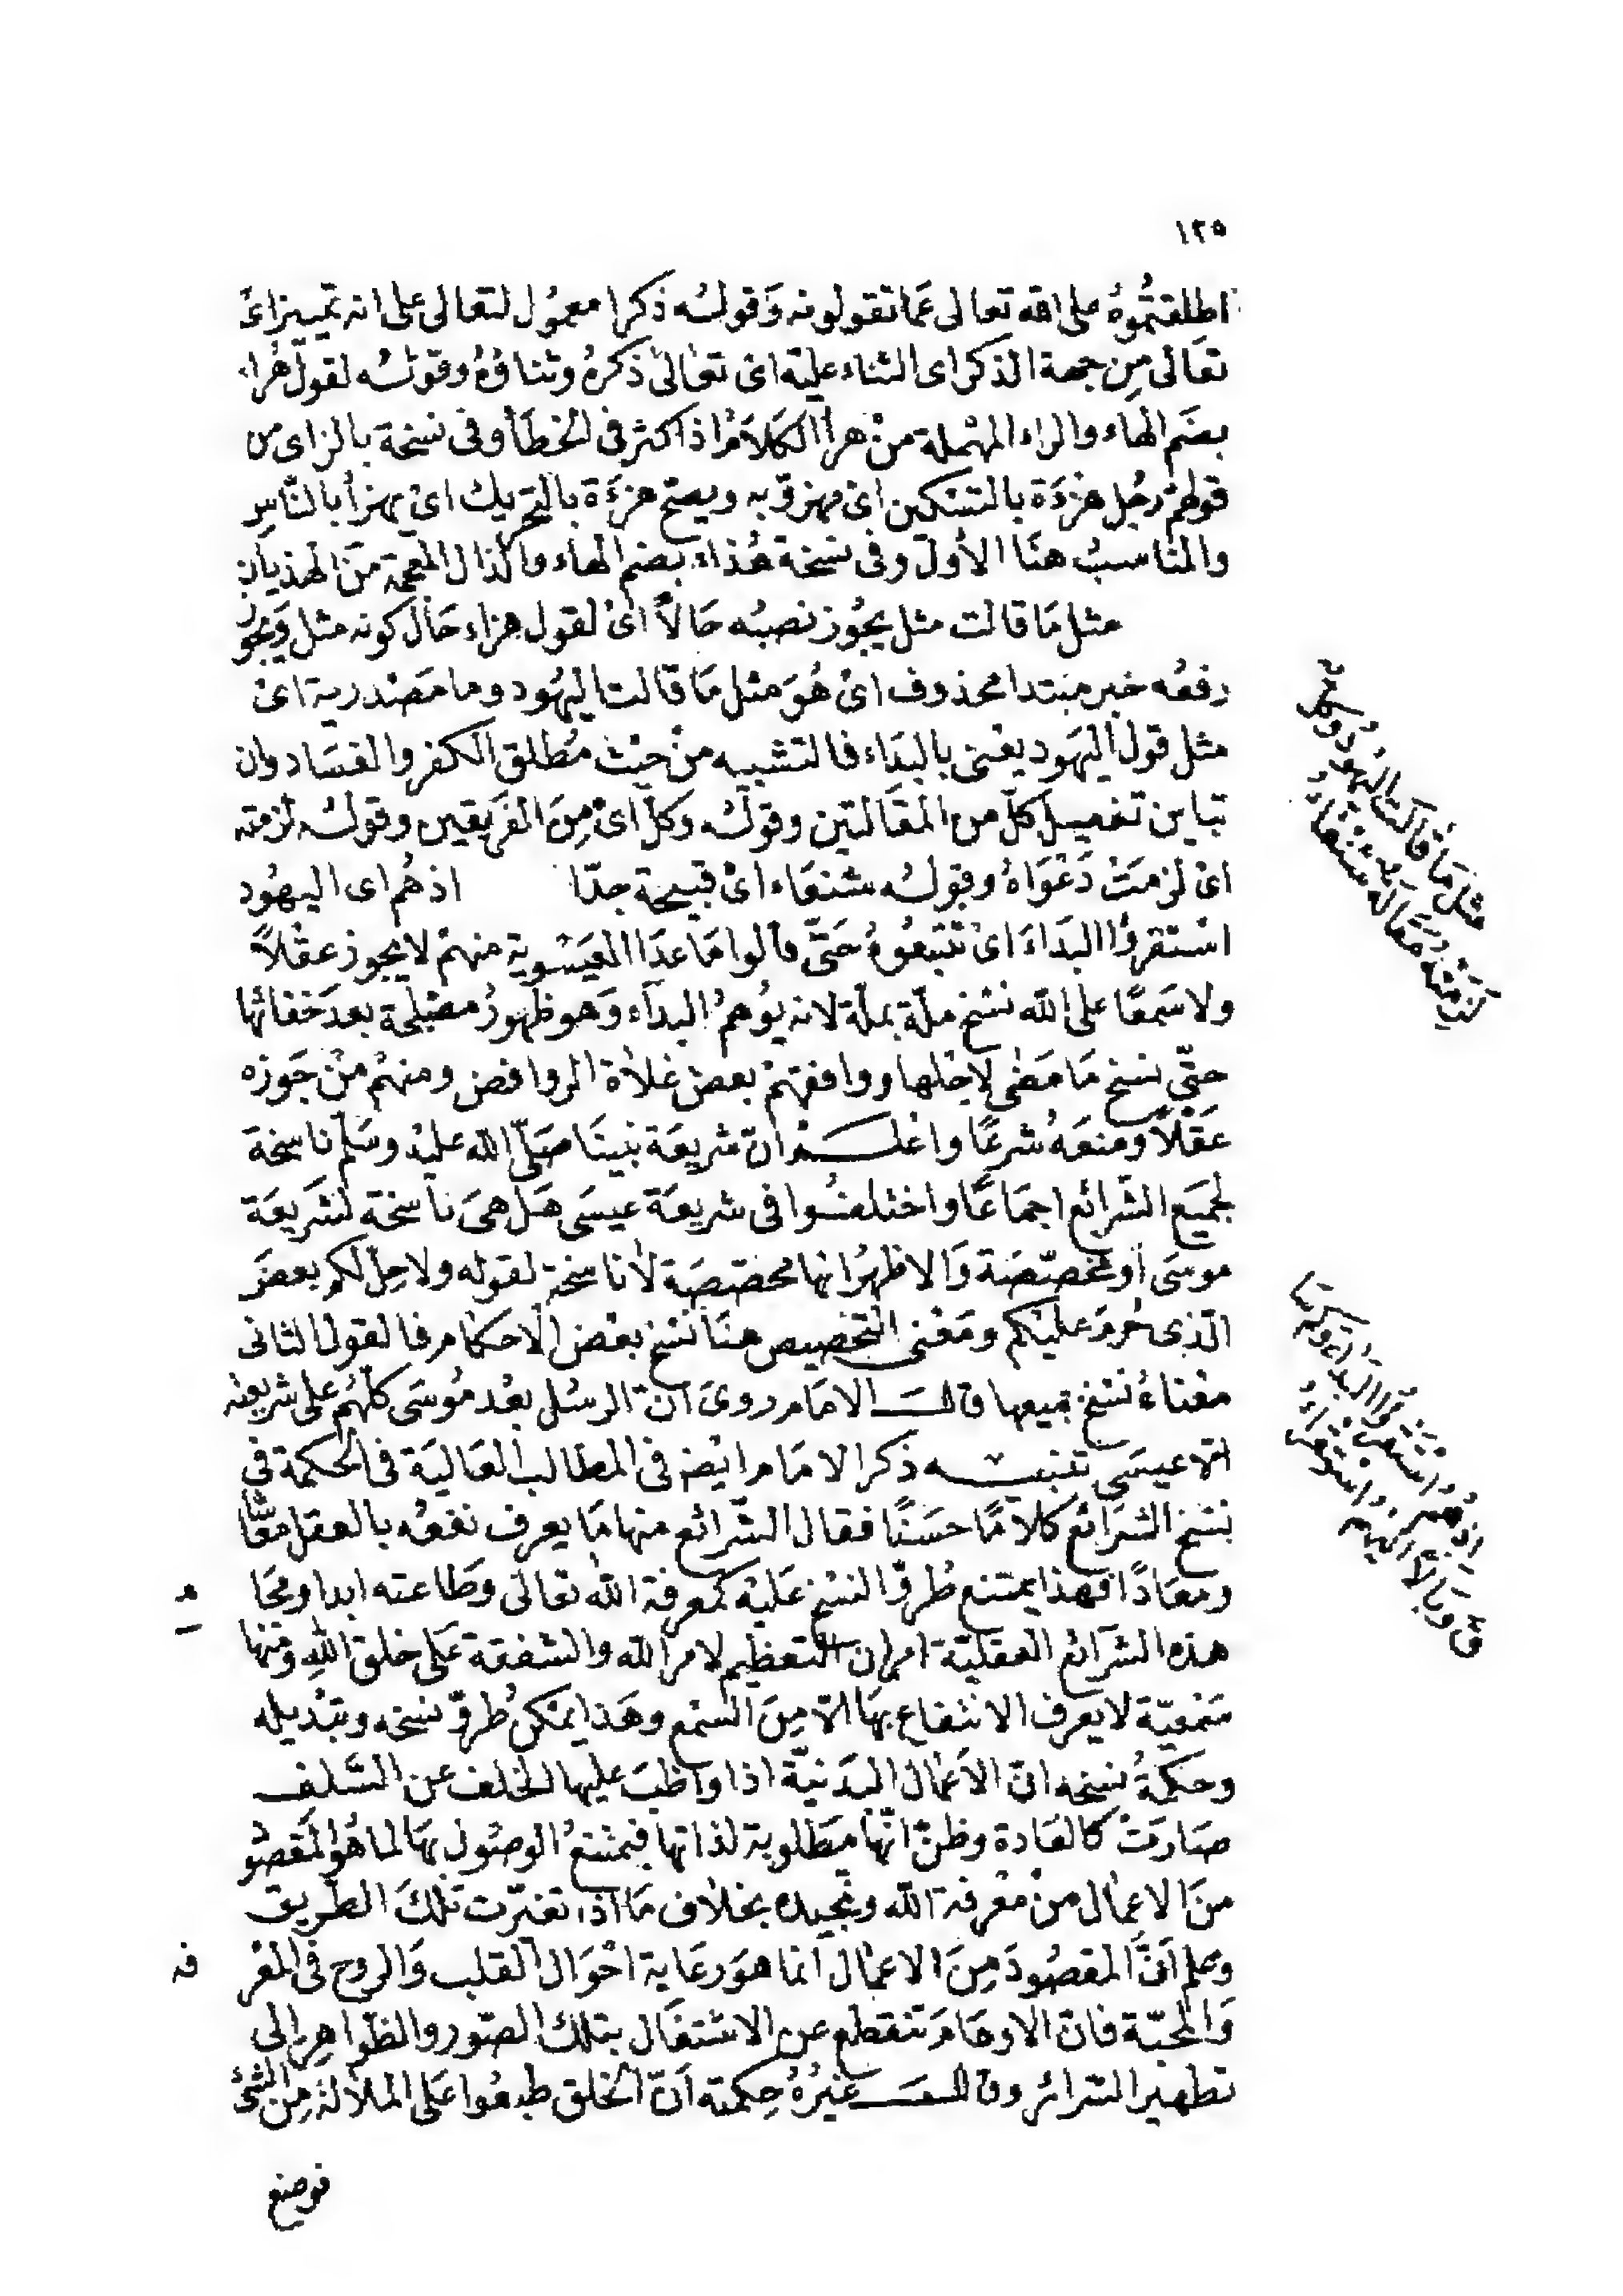 ١٢٥
اطلقتُمُوهُ على الله تعالى عَما تقولونه وَقولُه ذكرا معمُول لتعالى على انه تمييز اىْ
تعَالى مِن جهة الذكر اى الثناء عليْه اىْ تعَالىٰ ذكرهُ وثناؤهُ وقوْلُه لقول هُراء
بضَم الهاء والراء المهْملة منْ هرأ الكَلاَمُ اذا كثر فى الخطأ وفى نسخة بالزاى من
قولهمْ رجُل هزْءَة بالتسْكين اىْ مهزوّ به ويصح هزَءَة بالتحريك اىْ يهزأ بالنّاسِ
والمناسبُ هنَا الأوّل وفى نسخة هُذاء بضم الهاء والذال المعجمة منَ الهذيان
مثل مَا قالت مثل يجُوز نصبُه حَالاً اىْ لقول هزاء حَال كونه مثل وَيجُوز
رفعُه خبر مبْتدا محذوف اىْ هُوَ مثل مَا قالت اليهُود وما مَصْدرية اىْ
مثل قول اليَهود يعْنى بالبدَاء فالتشبيه منْ حيْث مُطلق الكفر والفسَاد وان
تباين تفصيل كلّ من المقَالتين وقولُه وكلّ اىْ مِنَ الفَريقين وقولُه لزمته
اىْ لزمَتْ دَعْوَاهُ وقولُه شنعَاء اىْ قبيحة جدّا اذ هُم اى اليهُود
اسْتقرؤا البدَاءَ اىْ تتبعُوهُ حَتّى قالوا مَا عدَا العيْسَوية منهمْ لا يجوز عقْلاً
ولا سَمعًا على الله نسْخ ملّة بملّة لانه يُوهمُ البدآء وَهو ظهورُ مصْلحة بعد خفائها
حتّى ينسخ مَا مَضٰى لاجْلها ووافقهمْ بعض غلاَة الروافض ومنهُمْ مَنْ جَوزه
عَقْلاً ومنعَهُ شرعًا واعْلَمْ انّ شريعَة نبينَا صَلّى الله عليْه وسَلّم ناسخة
لجميَع الشّرائع اجمَاعًا واختلفُوا فى شريعَة عيسَى هَل هىَ ناسخة لشَريعَة
موسَى اَو مخصّصَة وَالاظهرُ انها مخصّصَة لاَ ناسخة لقوله ولاحِلّ لكم بعضَ
الّذى حُرمَ عليْكم ومَعْنى التّخصيص هنَا نسْخ بعْض الاحكام فالقول الثانى
معْناهُ نسْخ جميعها قالَ الامَام روىَ انّ الرسُل بعْد مُوسَى كلّهُم على شريعته
الا عيسَى تنبيه ذكر الامَام ايْضا فى المطالب العَاليَة فى الحكمة فى
نسْخ الشرَائع كلاَمًا حسَنًا فقال الشّرائع منها مَا يعرف نفعُه بالعقل معَاشًا
ومعَادًا فهذا يمتنع طُروّ النسْخ عَليْه كمعرفة الله تعَالى وَطَاعته ابدا ومجَا
هذه الشّرآئع العقليّة امران التعظيم لامر الله والشفقة عَلى خلق اللهِ ومنها
سَمْعيّة لا يعرف الانتفاع بهَا الاّ مِنَ السَّمْع وهَذا يمْكن طُروّ نسخه وتبْديله
وحكمَةُ نسْخه انّ الاَعمَال البَدَنيّة اذا وَاظبَ عليها الخلف عن السَّلف
صَارَتْ كالعَادة وظنّ انّها مَطلوبَة لذاتها فيمْتنعُ الوصُول بهَا لما هُو المَقصُود
منَ الاعمَال منْ معْرفة الله وتمجيده بخلاَف مَا اذا تغيّرت تلكَ الطّريق
وعلم اَنَّ المقصُودَ مِنَ الاعمَال انما هوَ رعَاية احْوَال القلب وَالروح فى المعْر فة
وَالمحبّة فانّ الاوهَامَ تنقطع عن الاشتغَال بتلكَ الصّور والظّواهِر الى
تطهير السّرائر وقالَ غيْرُهُ حِكمته اَنّ الخلق طبعُوا عَلى الملاَلة مِنَ الشئ
فوضع
مثل مَا قالت اليهُودُ وكلٌّ
لَزمَتْهُ مقَالَة شنْعَاءُ
اذ هُمُ اسْتقرؤا البَدَاءَ وكم سَا
ق وبَالاً اليهم اسْتقرَاءُ